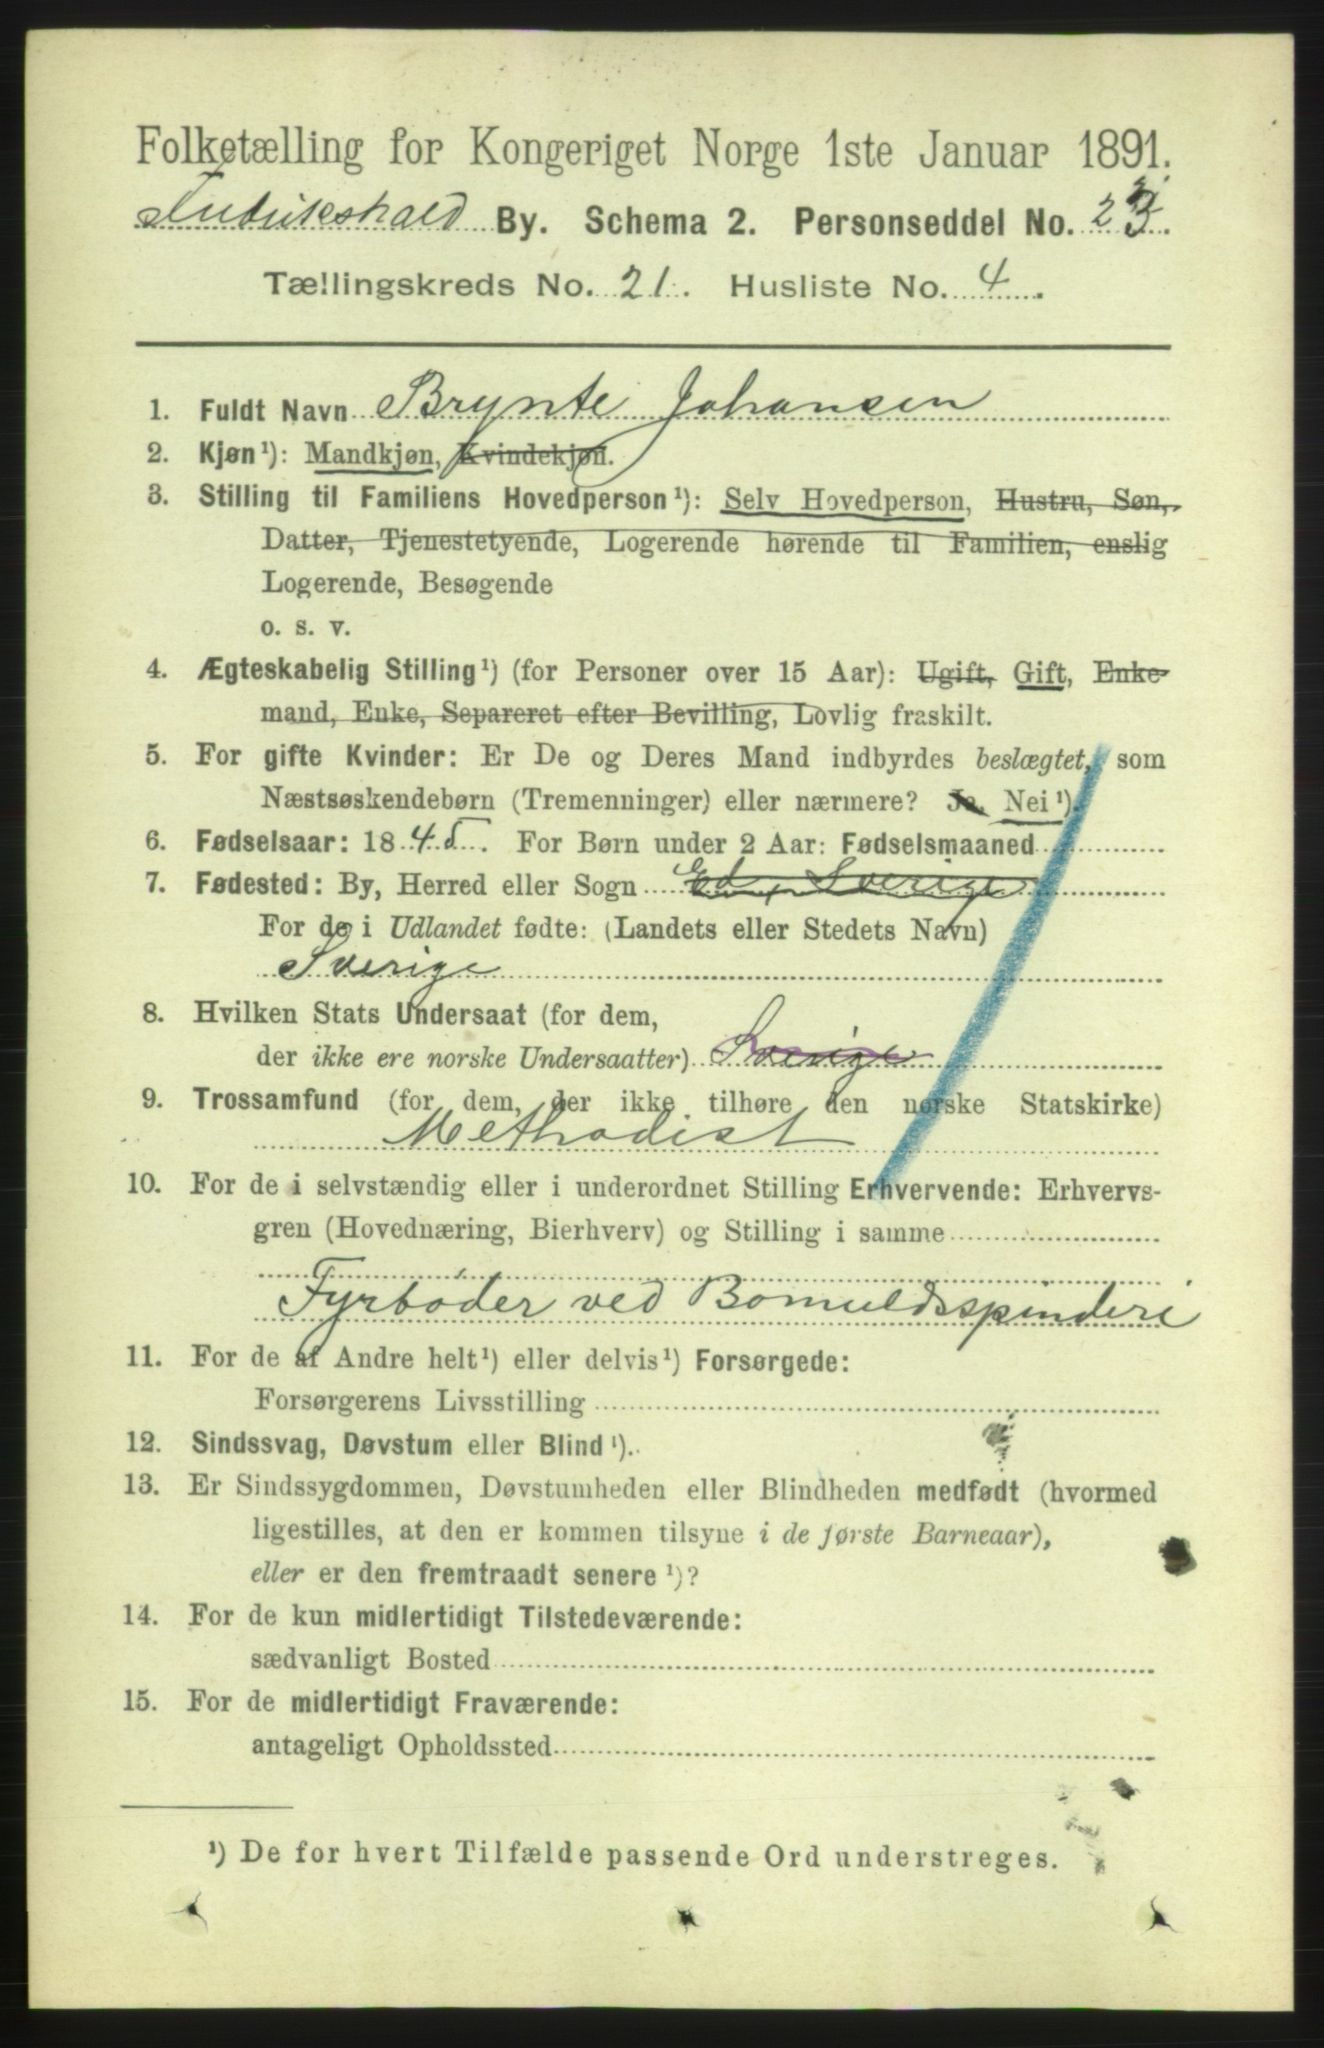 Folketælling for Kongeriget Norge 1ste Januar 1891.
Fredrikshald By. Schema 2. Personseddel No. 23.
Tællingskreds No. 21. Husliste No. 4.
1. Fuldt Navn Brynte Johansen
2. Kjøn¹): Mandkjøn, Kvindekjøn.
3. Stilling til Familiens Hovedperson¹): Selv Hovedperson, Hustru, Søn,
Datter, Tjenestetyende, Logerende hørende til Familien, enslig
Logerende, Besøgende
o. s. v.
4. Ægteskabelig Stilling¹) (for Personer over 15 Aar): Ugift, Gift, Enke-
mand, Enke, Separeret efter Bevilling, Lovlig fraskilt.
5. For gifte Kvinder: Er De og Deres Mand indbyrdes beslægtet, som
Næstsøskendebørn (Tremenninger) eller nærmere? Ja, Nei¹).
6. Fødselsaar: 1845. For Børn under 2 Aar: Fødselsmaaned
7. Fødested: By, Herred eller Sogn Ed, Sverige
For de i Udlandet fødte: (Landets eller Stedets Navn)
Sverige
8. Hvilken Stats Undersaat (for dem,
der ikke ere norske Undersaatter) Sverige
9. Trossamfund (for dem, der ikke tilhøre den norske Statskirke)
Methodist
10. For de i selvstændig eller i underordnet Stilling Erhvervende: Erhvervs-
gren (Hovednæring, Bierhverv) og Stilling i samme
Fyrbøder ved Bomuldsspinderi
11. For de af Andre helt¹) eller delvis¹) Forsørgede:
Forsørgerens Livsstilling
12. Sindssvag, Døvstum eller Blind¹).
13. Er Sindssygdommen, Døvstumheden eller Blindheden medfødt (hvormed
ligestilles, at den er kommen tilsyne i de første Barneaar),
eller er den fremtraadt senere¹)?
14. For de kun midlertidigt Tilstedeværende:
sædvanligt Bosted
15. For de midlertidigt Fraværende:
antageligt Opholdssted
¹) De for hvert Tilfælde passende Ord understreges.